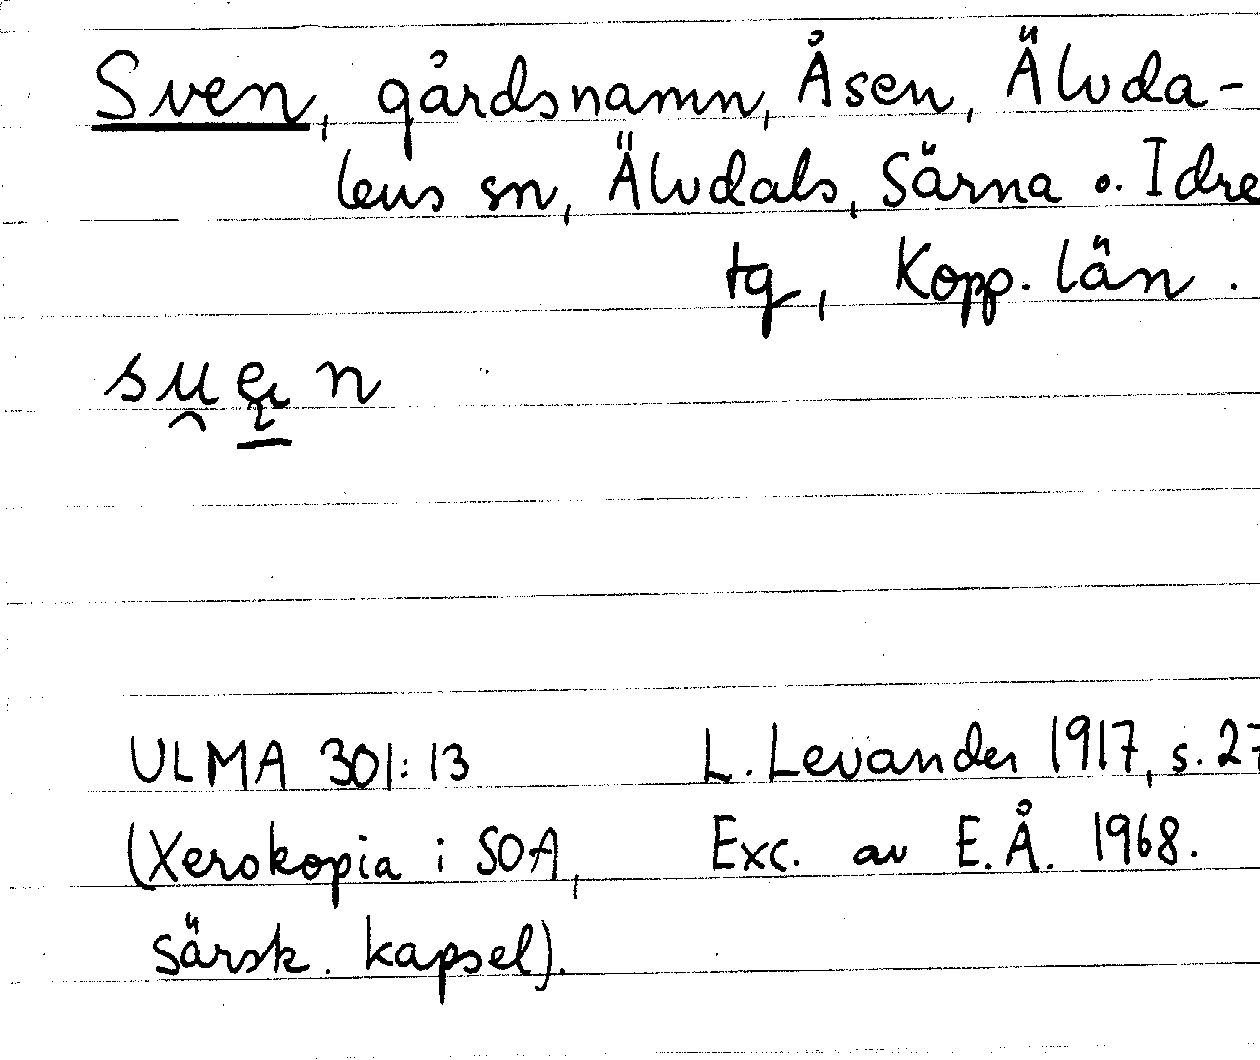 Sven, gårdsnamn, Åsen, Älvda-
lens sn, Älvdals, Särna o. Idre
tg, Kopp. län.
su̯e̢n
ULMA 301:13 L. Levander 1917, s. 27
(Xerokopia i SOA, Exc. av E.Å. 1968.
särsk. kapsel).